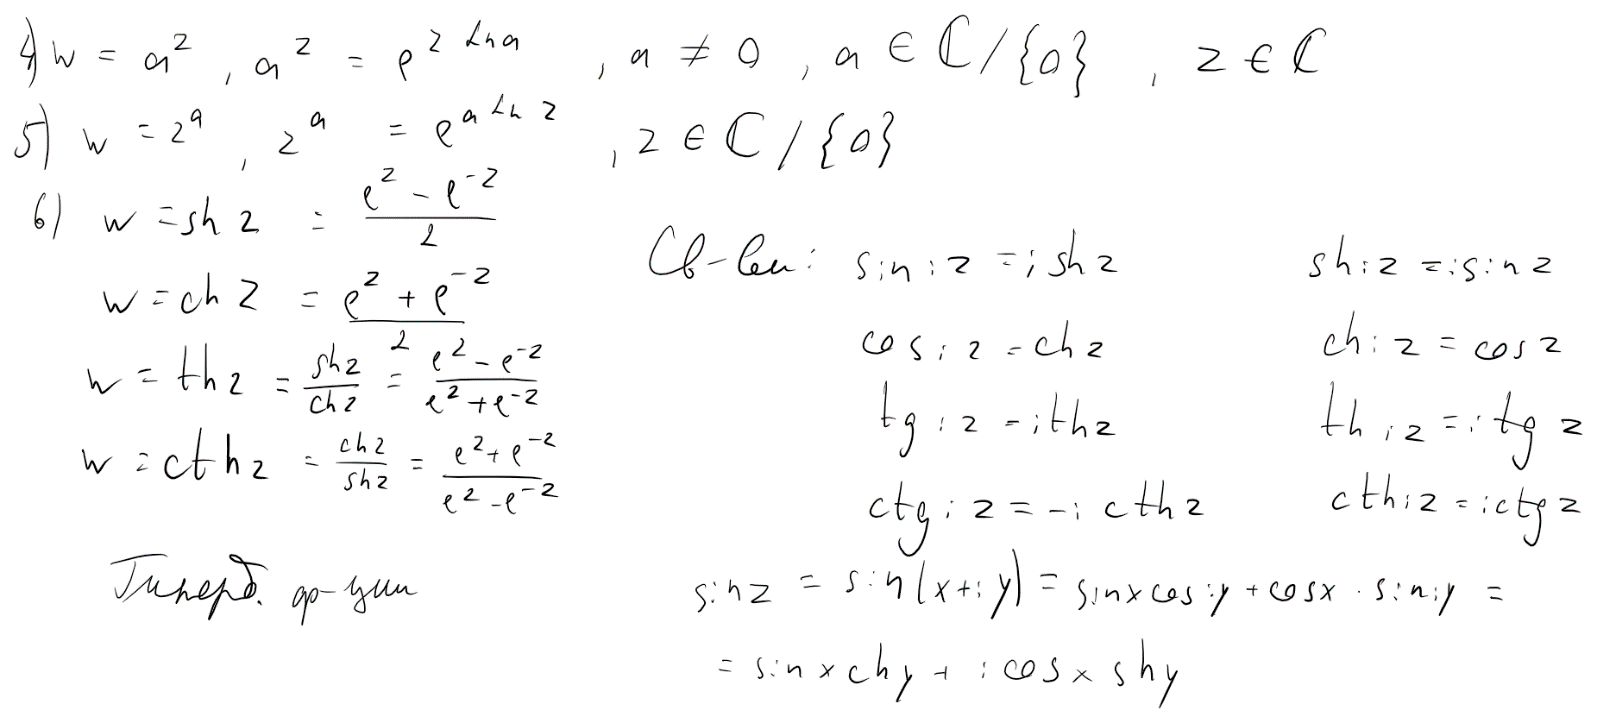 4) w = a^z, a^z = e^{z Ln a}, a ≠ 0, a ∈ ℂ/{0}, z ∈ ℂ
5) w = z^a, z^a = e^{a Ln z}, z ∈ ℂ/{0}
6) w = sh z = \frac{e^z - e^{-z}}{2}
w = ch z = \frac{e^z + e^{-z}}{2}
w = th z = \frac{sh z}{ch z} = \frac{e^z - e^{-z}}{e^z + e^{-z}}
w = cth z = \frac{ch z}{sh z} = \frac{e^z + e^{-z}}{e^z - e^{-z}}
Гиперб. ф-ции
Св-ва: sin iz = i sh z
sh iz = i sin z
cos iz = ch z
ch iz = cos z
tg iz = i th z
th iz = i tg z
ctg iz = -i cth z
cth iz = i ctg z
sin z = sin(x+iy) = sin x cos iy + cos x · sin iy =
= sin x ch y + i cos x sh y